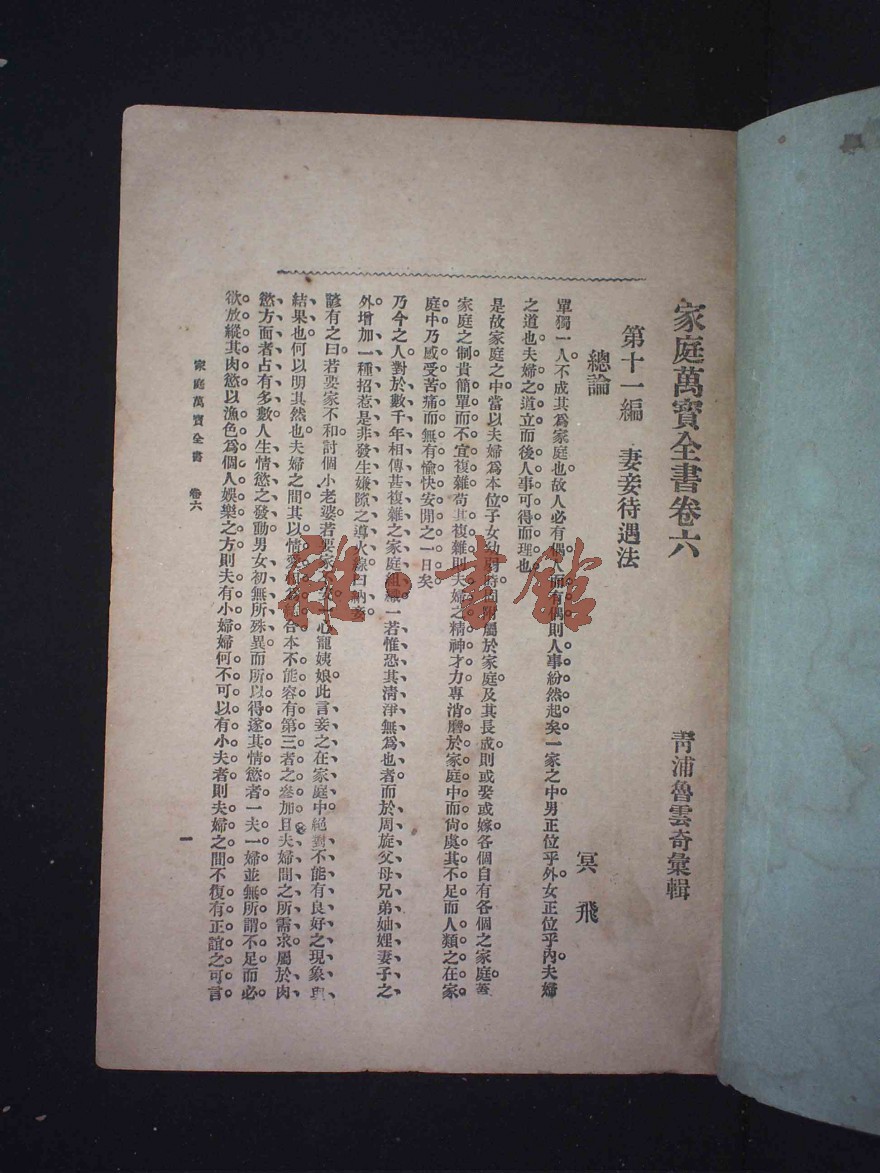 家庭萬寶全書卷六
青浦魯雲奇彙輯
第十一編 妻妾待遇法
冥飛
總論
單獨一人不成其爲家庭也故人必有偶人而有偶則人事紛然起矣一家之中男正位乎外女正位乎內夫婦
之道也夫婦之道立而後人事可得而理也
是故家庭之中當以夫婦爲本位子女幼弱時固附屬於家庭及其長成則或娶或嫁各個自有各個之家庭蓋
家庭之制貴簡單而不宜複雜苟其複雜則夫婦之精神才力專消磨於家庭中而尙虞其不足而人類之在家
庭中乃感受苦痛而無有愉快安閒之一日矣
乃今之人對於數千年相傳甚複雜之家庭組織一若惟恐其清淨無爲也者而於周旋父母兄弟妯娌妻子之
外增加一種招惹是非發生嫌隙之導火線曰納妾
諺有之曰若要家不和討個小老婆若要家心寵姨娘此言妾之在家庭中絕對不能有良好之現象與
結果也何以明其然也夫婦之間其以情愛結合本不能容有第三者之參加且夫婦間之所需求屬於肉
慾方面者占有多數人生情慾之發動男女初無所殊異而所以得遂其情慾者一夫一婦並無所謂不足而必
欲放縱其肉慾以漁色爲個人娛樂之方則夫有小婦婦何不可以有小夫者則夫婦之間不復有正誼之可言
家庭萬寶全書 卷六
一
雜·書館